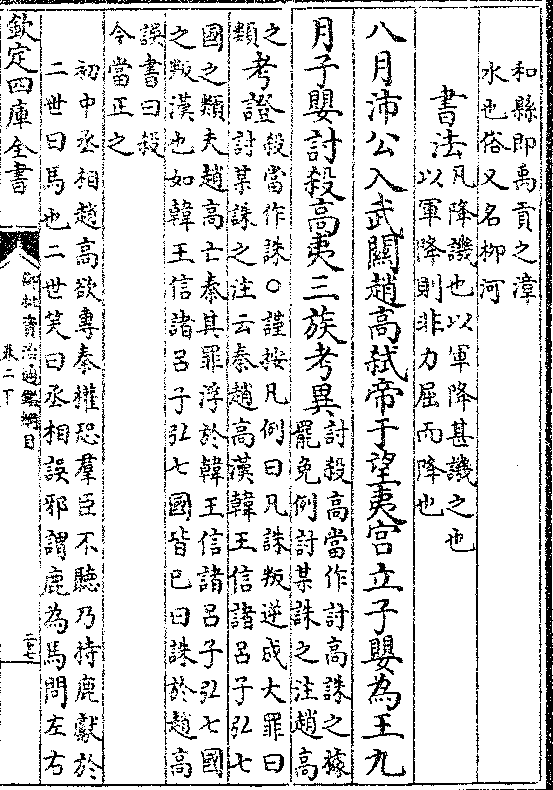 和縣即禹貢之漳
水也俗又名柳河
書法凡降譏也以軍降甚譏之也
以軍降則非力屈而降也
八月沛公入武關趙高弒帝于望夷宮立子嬰為王九
月子嬰討殺高夷三族考異討殺高當作討高誅之據
罷免例討某誅之注趙高
之
類考證殺當作誅○謹按凡例曰凡誅叛逆成大罪曰
討某誅之注云秦趙高漢韓王信諸呂子弘七
國之類夫趙高亡秦其罪浮於韓王信諸呂子弘七國
之叛漢也如韓王信諸呂子弘七國皆已曰誅於趙高
誤書曰殺
今當正之
初中丞相趙高欲專秦權恐羣臣不聽乃持鹿獻於
二世曰馬也二世笑曰丞相誤邪謂鹿為馬問左右
欽定四庫全書
御批資治通鑑綱目
卷二下